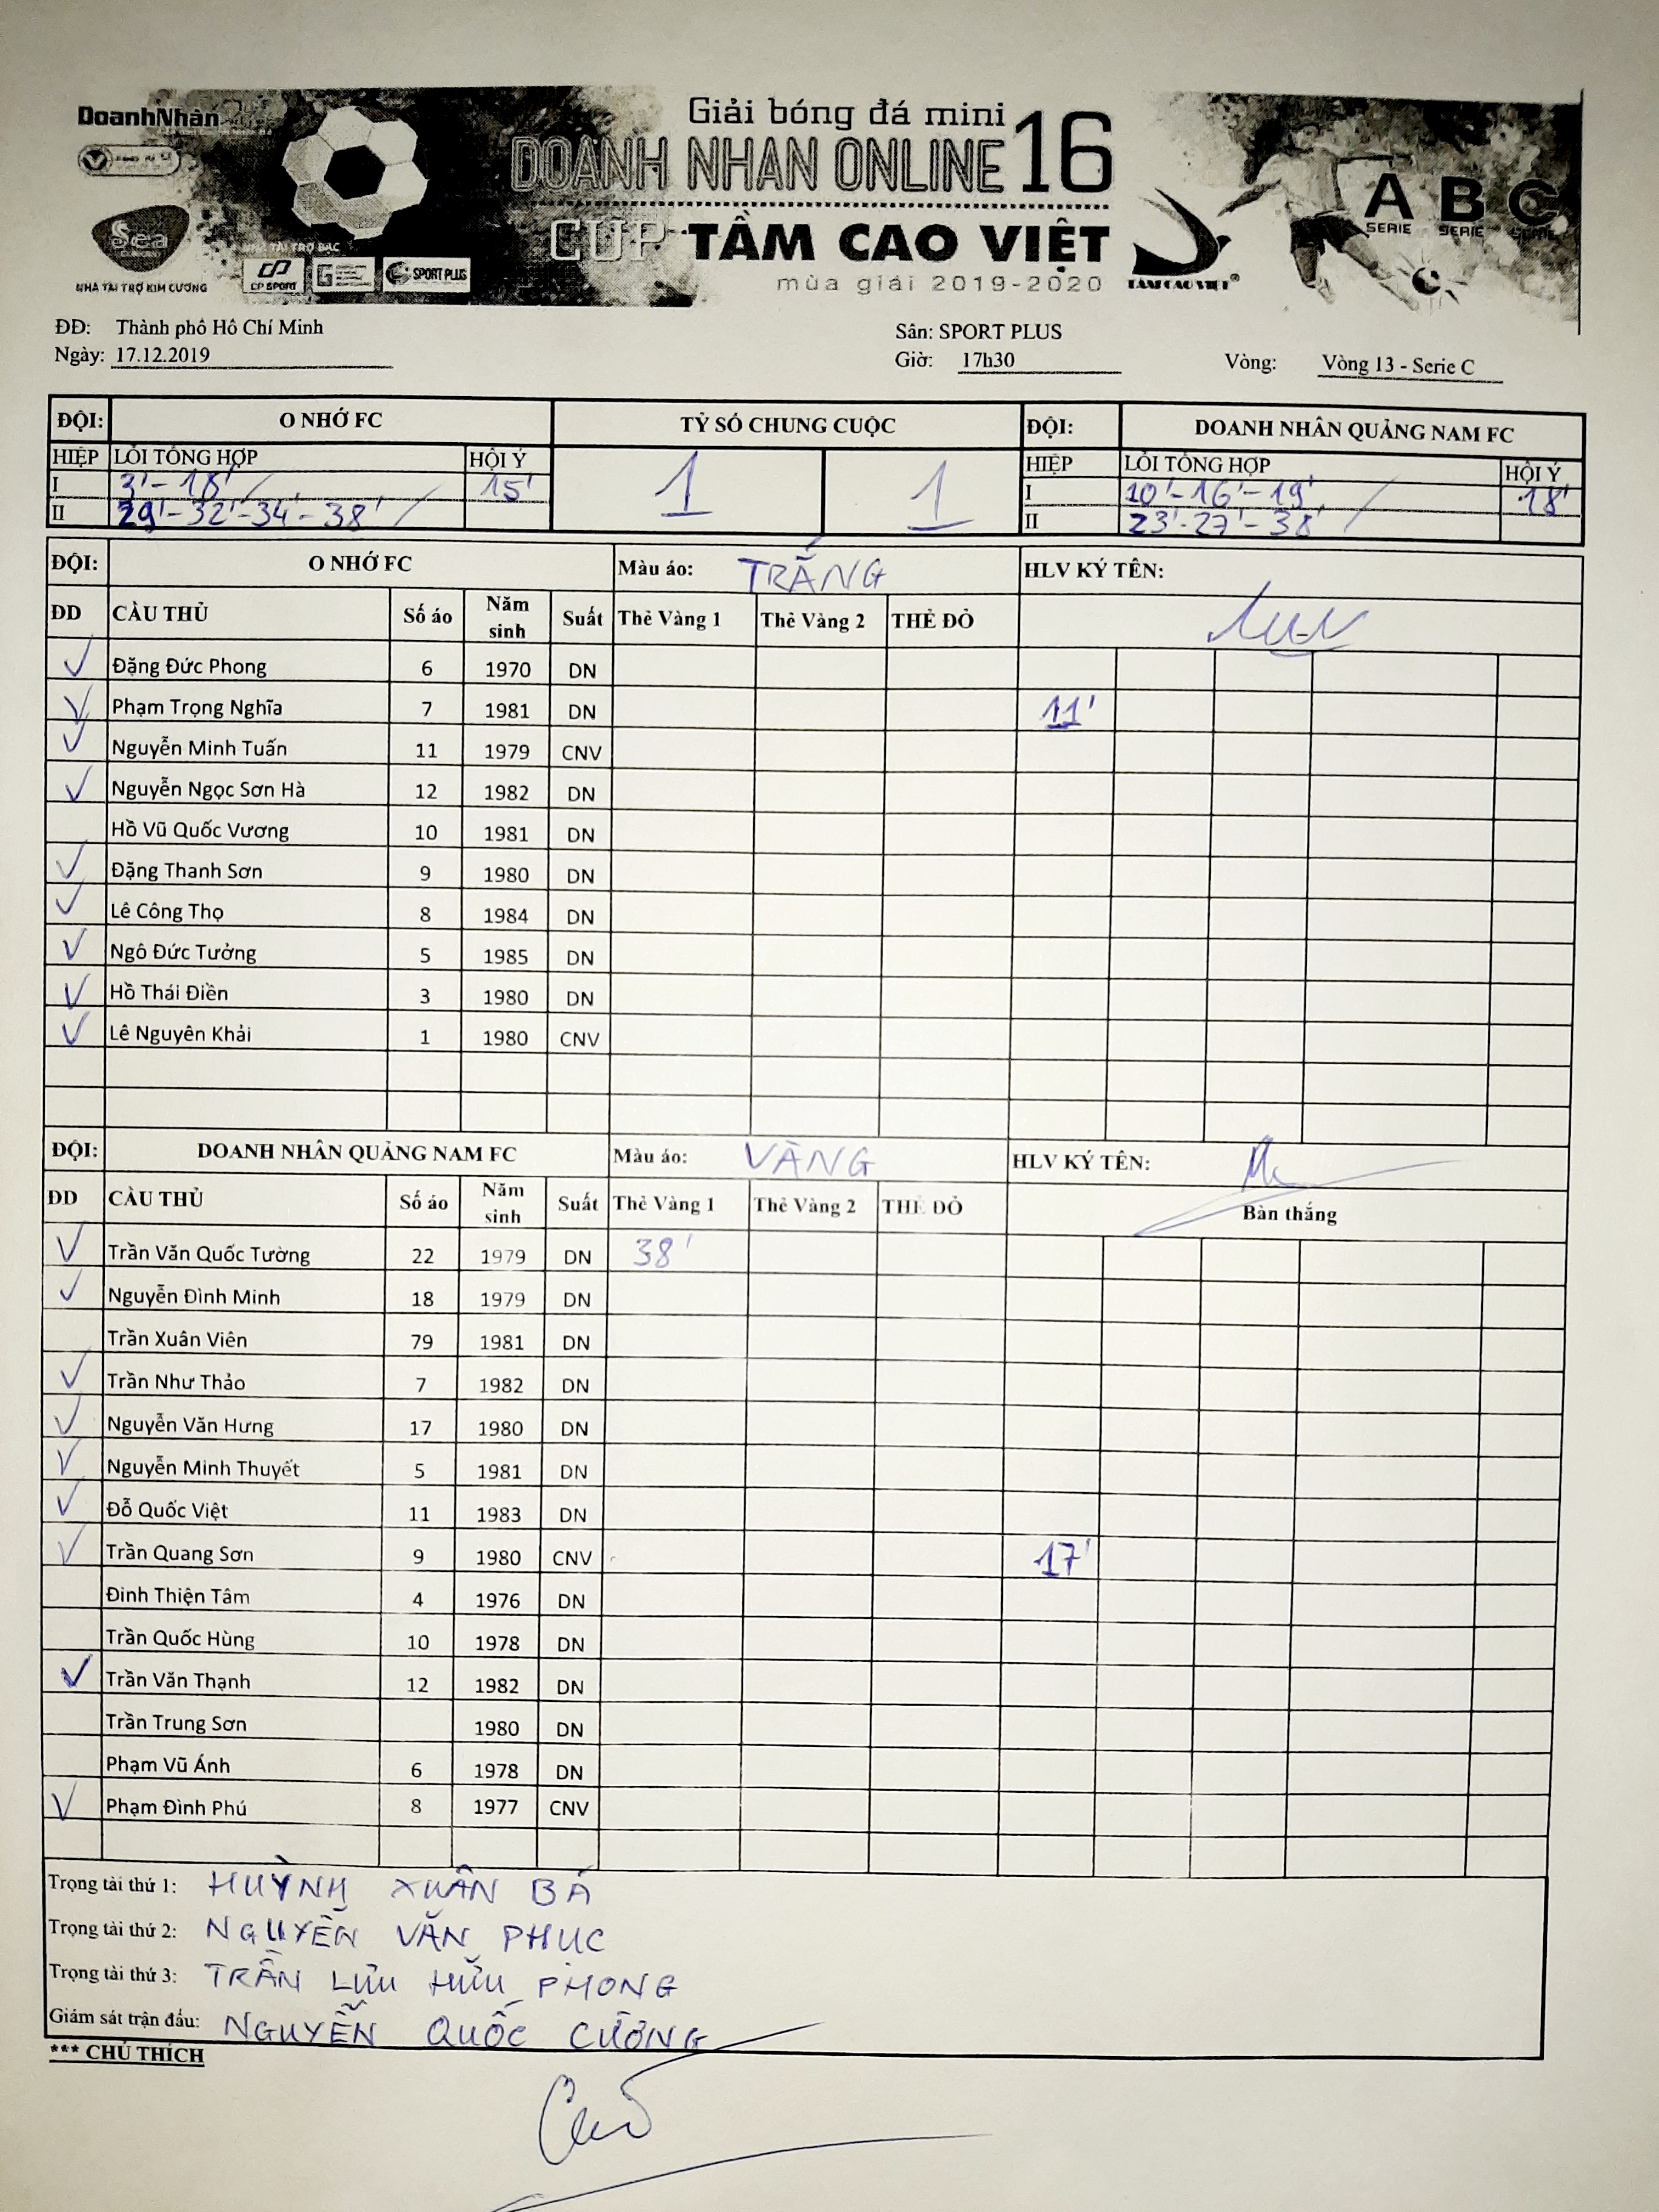 DoanhNhân
Giải bóng đá mini
DOANH NHAN ONLINE 16
CUP TẦM CAO VIỆT
mùa giải 2019-2020
A B C
SERIE SERIE SERIE
Sea
NHÀ TÀI TRỢ KIM CƯƠNG
NHÀ TÀI TRỢ BẠC
CP SPORT
SPORT PLUS
TẦM CAO VIỆT
ĐĐ: Thành phố Hồ Chí Minh Sân: SPORT PLUS
Ngày: 17.12.2019 Giờ: 17h30 Vòng: Vòng 13 - Serie C
ĐỘI: O NHỚ FC TỶ SỐ CHUNG CUỘC ĐỘI: DOANH NHÂN QUẢNG NAM FC
HIỆP LỖI TỔNG HỢP HỘI Ý 1 1 HIỆP LỖI TỔNG HỢP HỘI Ý
I 3'-18' 15' I 10'-16'-19' 18'
II 29'-32'-34'-38' II 23'-27'-38'
ĐỘI: O NHỚ FC Màu áo: TRẮNG HLV KÝ TÊN:
ĐD CẦU THỦ Số áo Năm sinh Suất Thẻ Vàng 1 Thẻ Vàng 2 THẺ ĐỎ
Đặng Đức Phong 6 1970 DN
Phạm Trọng Nghĩa 7 1981 DN 11'
Nguyễn Minh Tuấn 11 1979 CNV
Nguyễn Ngọc Sơn Hà 12 1982 DN
Hồ Vũ Quốc Vương 10 1981 DN
Đặng Thanh Sơn 9 1980 DN
Lê Công Thọ 8 1984 DN
Ngô Đức Tưởng 5 1985 DN
Hồ Thái Điền 3 1980 DN
Lê Nguyên Khải 1 1980 CNV
ĐỘI: DOANH NHÂN QUẢNG NAM FC Màu áo: VÀNG HLV KÝ TÊN:
ĐD CẦU THỦ Số áo Năm sinh Suất Thẻ Vàng 1 Thẻ Vàng 2 THẺ ĐỎ Bàn thắng
Trần Văn Quốc Tường 22 1979 DN 38'
Nguyễn Đình Minh 18 1979 DN
Trần Xuân Viên 79 1981 DN
Trần Như Thảo 7 1982 DN
Nguyễn Văn Hưng 17 1980 DN
Nguyễn Minh Thuyết 5 1981 DN
Đỗ Quốc Việt 11 1983 DN
Trần Quang Sơn 9 1980 CNV 17'
Đinh Thiện Tâm 4 1976 DN
Trần Quốc Hùng 10 1978 DN
Trần Văn Thạnh 12 1982 DN
Trần Trung Sơn 1980 DN
Phạm Vũ Ánh 6 1978 DN
Phạm Đình Phú 8 1977 CNV
Trọng tài thứ 1: HUỲNH XUÂN BÁ
Trọng tài thứ 2: NGUYỄN VĂN PHUC
Trọng tài thứ 3: TRẦN LƯU HỮU PHONG
Giám sát trận đấu: NGUYỄN QUỐC CƯỜNG
*** CHÚ THÍCH